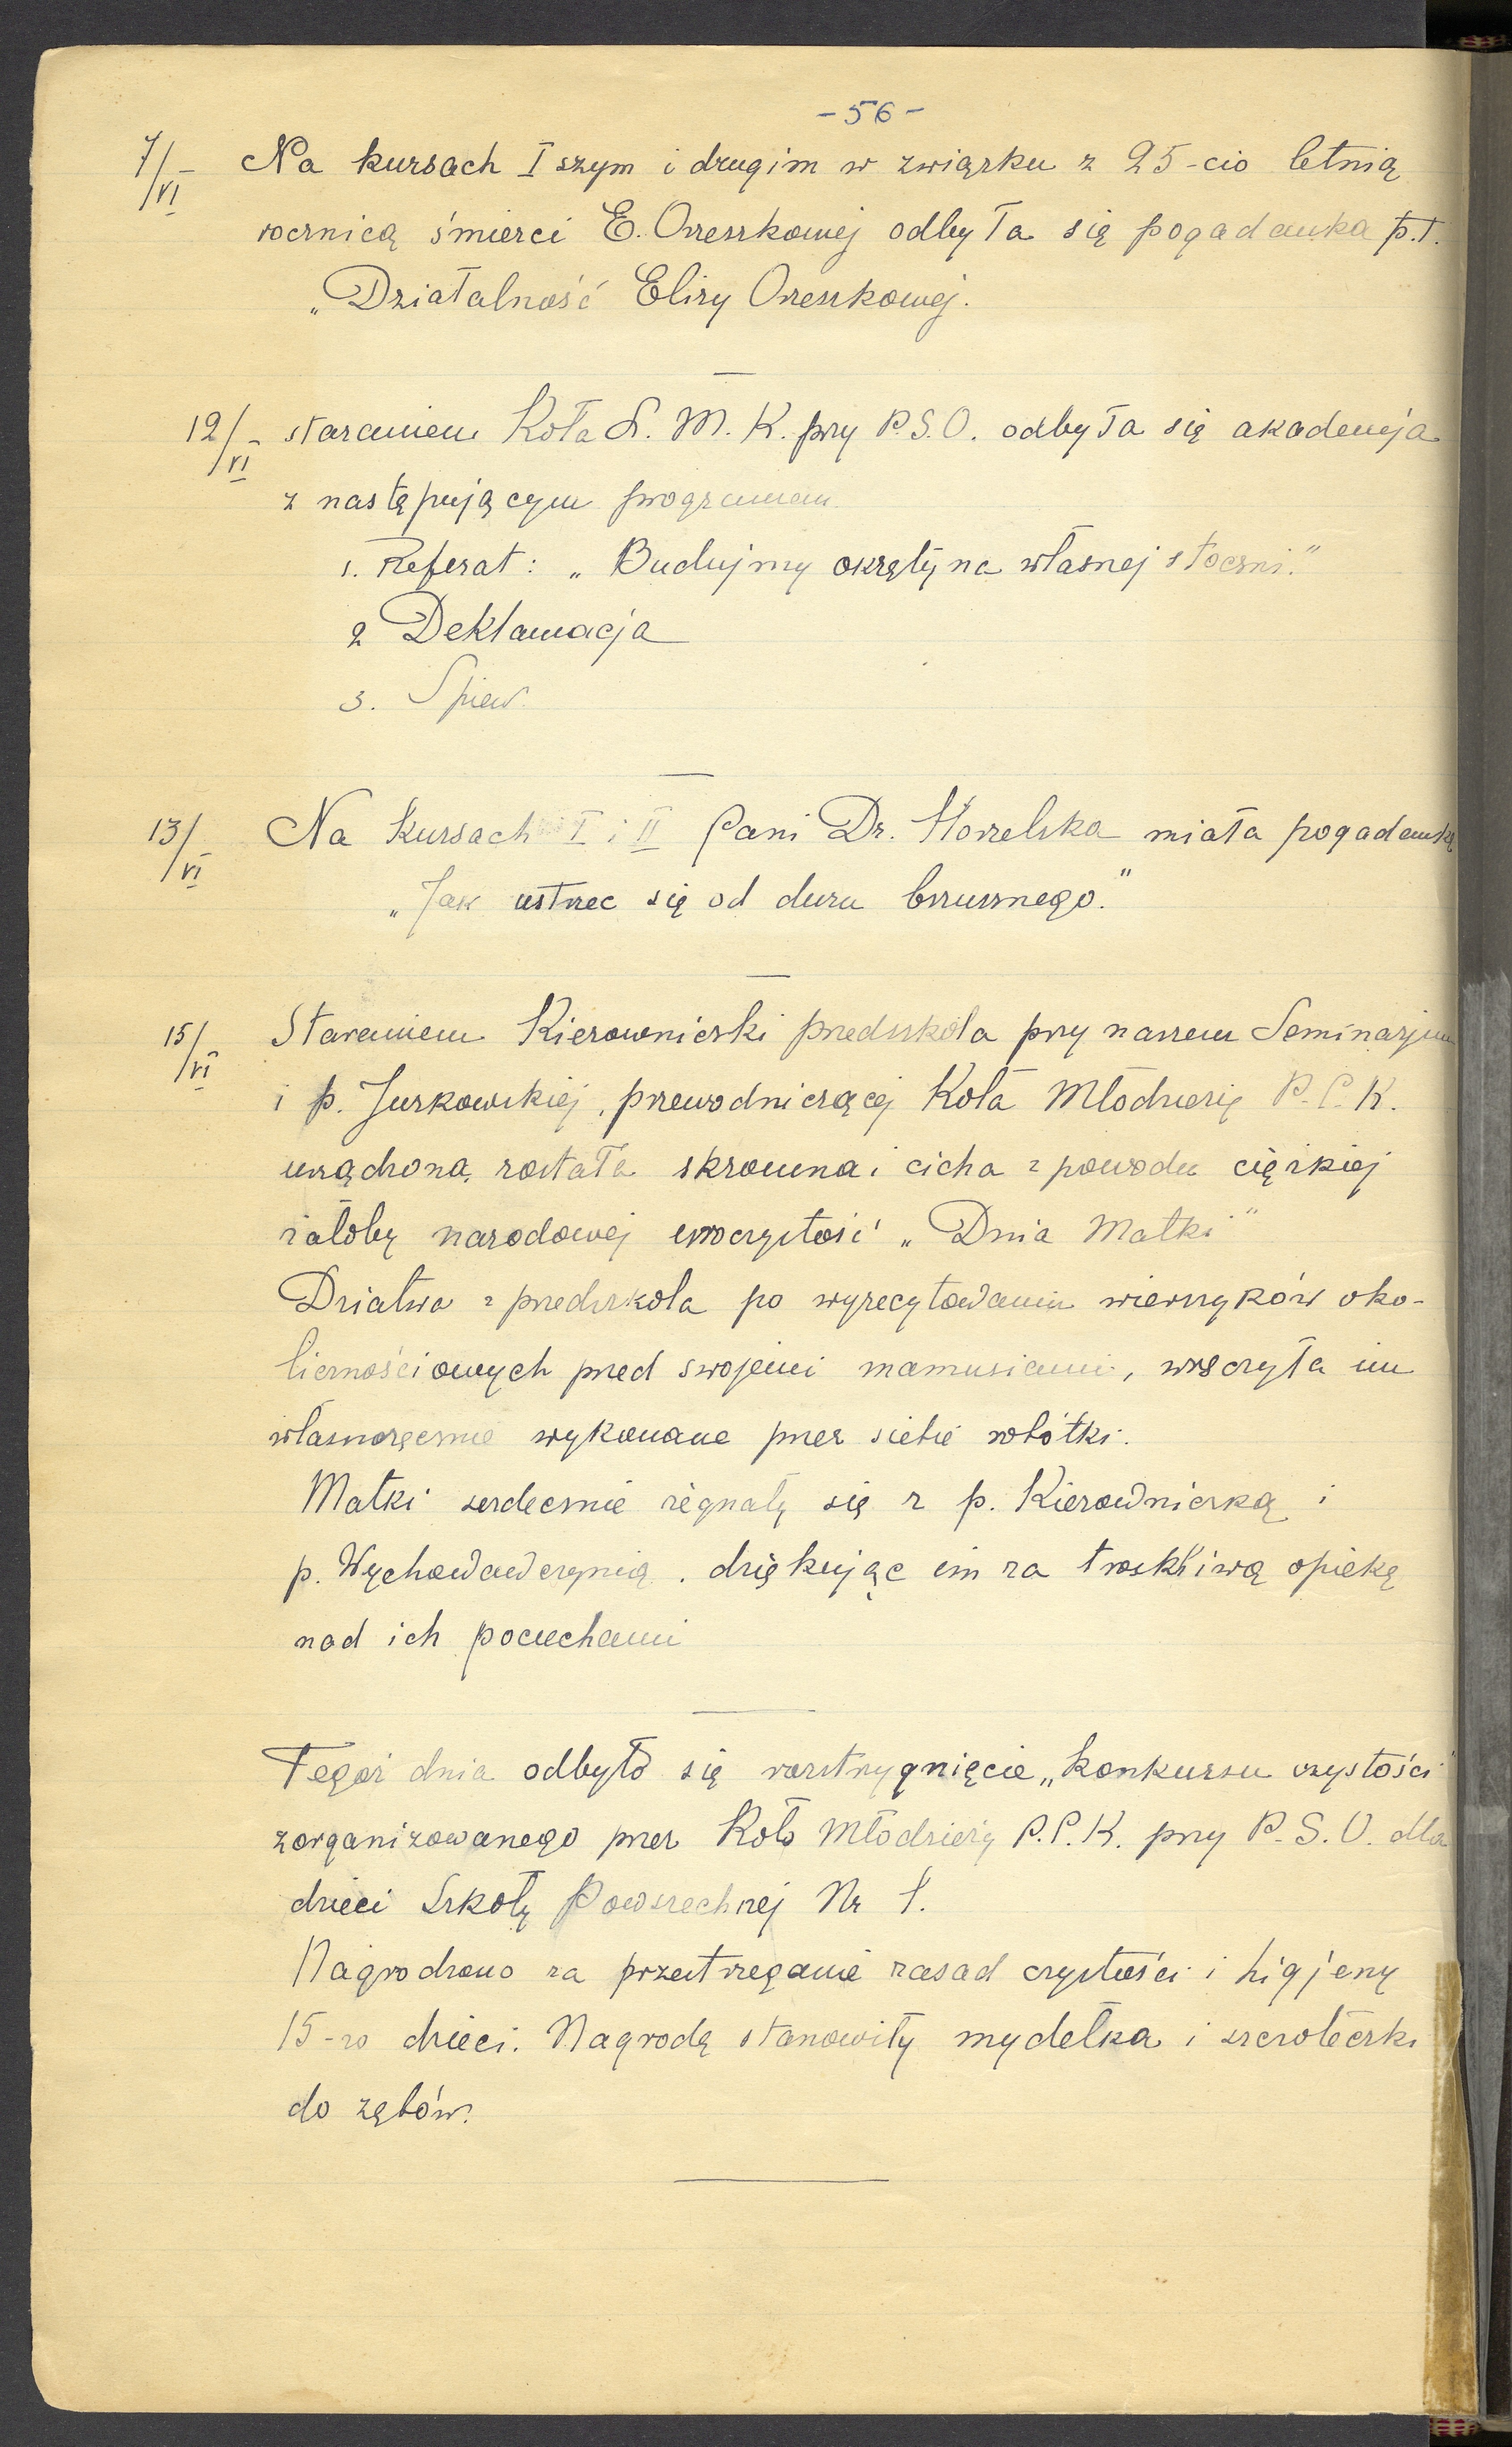 - 56 -
7/VI - Na kursach I szym i drugim w związku z 25-cio letnią
rocznicą śmierci E. Orzeszkowej odbyła się pogadanka p.t.
„Działalność Elizy Orzeszkowej.
12/VI - staraniem Koła L. M. K. przy P.S.O. odbyła się akademja
z następującym programem
1. Referat: „Budujmy okręty na własnej stoczni."
2 Deklamacja
3. Spiew.
13/VI - Na kursach I i II Pani Dr. miała pogadankę
„Jak ustrzec się od duru brzusznego."
15/VI - Staraniem Kierowniczki przedszkola przy naszem Seminarjum
i p. Jurkowskiej, przewodniczącej Koła Młodzieży P.C.K.
urządzona została skromna i cicha z powodu ciężkiej
żałoby narodowej uroczystość „Dnia Matki"
Dziatwa z przedszkola po wyrecytowaniu wierszyków oko-
licznościowych przed swojemi mamusiami, wręczyła im
własnoręcznie wykonane przez siebie robótki.
Matki serdecznie żegnały się z p. Kierowniczką i
p. Wychowawczynią, dziękując im za troskliwą opiekę
nad ich pociechami
Tegoż dnia odbyło się rozstrzygnięcie „Konkursu czystości"
zorganizowanego przez Koło Młodzieży P.C.K. przy P.S.O. dla
dzieci Szkoły Powszechnej Nr 1.
Nagrodzono za przestrzeganie zasad czystości i higjeny
15-ro dzieci. Nagrodę stanowiły mydełka i szczoteczki
do zębów.